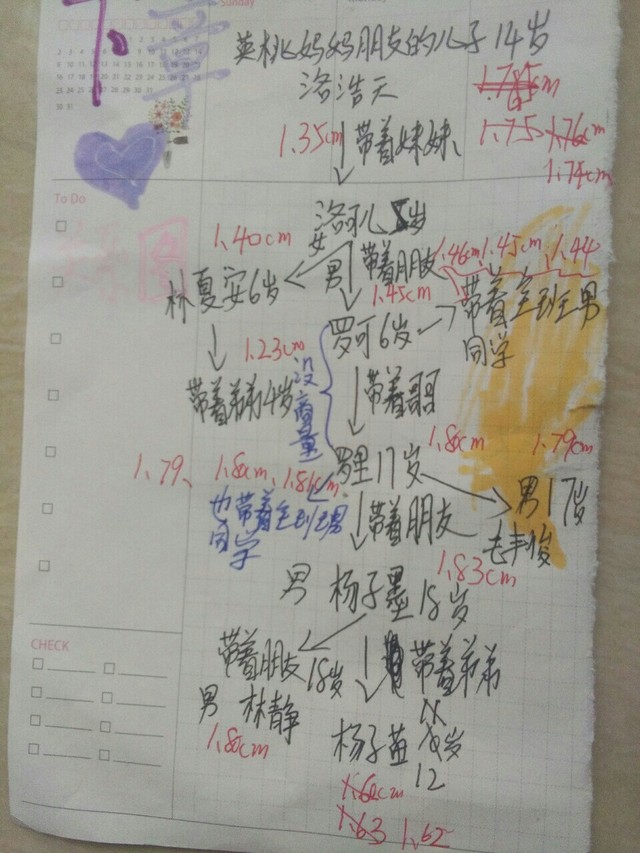 Sunday
英桃妈妈朋友的儿子 14岁
洛浩天
1.75 1.76cm
1.74cm
1.35cm 带着妹妹
洛可儿 5岁
女
1.40cm
男 带着朋友
1.46cm 1.45cm、1.44
林夏安6岁
1.45cm
带着全班男
同学
罗可6岁
1.23cm
带着弟弟4岁
没商量
带着哥哥
1.80cm 1.79cm
罗里17岁
1.79、1.80cm、1.81cm
也带着全班男
同学
男17岁
带着朋友
1.83cm
男 杨子墨18岁
带着朋友18岁
带着弟弟
男 林静
1.80cm
杨子蓝 岁
12
1.60cm
1.63 1.62
To Do
CHECK